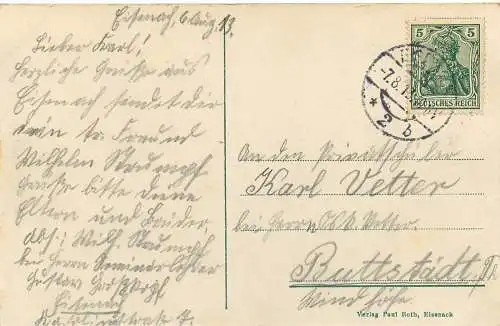 Eisenach, 6 Aug. 13.
Lieber Karl!
Herzliche Grüße aus
Eisenach sendet dir
dein tr. Freund
Wilhelm Stumpf
Grüße bitte deine
Eltern und Brüder.
Abs.: Wilh. Stumpf
bei Herrn Seminarlehrer
Gustav
Eisenach
7.
5
DEUTSCHES REICH
-7.8.1
* 2 b
An den Privatschüler
Karl Vetter
bei Herrn Vetter.
Buttstädt/Th
Windhöfe.
Verlag Paul Roth, Eisenach